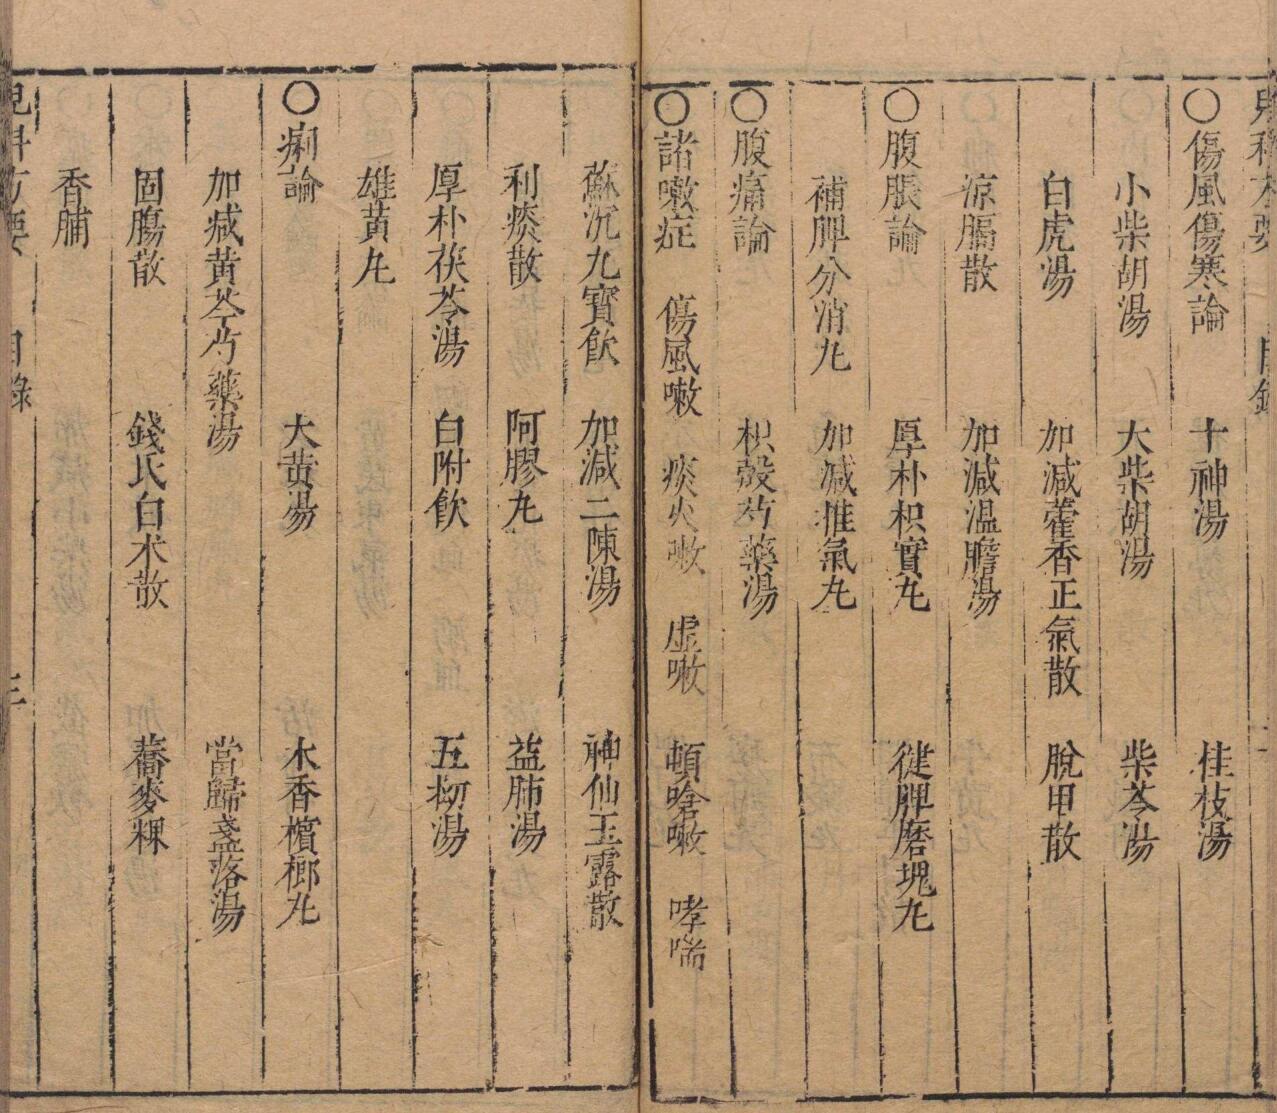 兒科方要 目錄 二
○傷風傷寒論 十神湯 桂枝湯
小柴胡湯 大柴胡湯 柴苓湯
白虎湯 加減藿香正氣散 脫甲散
涼膈散 加減溫膽湯
○腹脹論 厚朴枳實丸 健脾磨塊丸
補脾分消丸 加減推氣丸
○腹痛論 枳殼芍藥湯
○諸嗽症 傷風嗽 痰火嗽 虛嗽 頓嗆嗽 哮喘
蘇沉九寶飲 加減二陳湯 神仙玉露散
利痰散 阿膠丸 益肺湯
厚朴茯苓湯 白附飲 五拗湯
雄黃丸
○痢論 大黃湯 木香檳榔丸
加減黃芩芍藥湯 當歸盞落湯
固腸散 錢氏白朮散 蕎麥粿
香脯
兒科方要 目錄 三